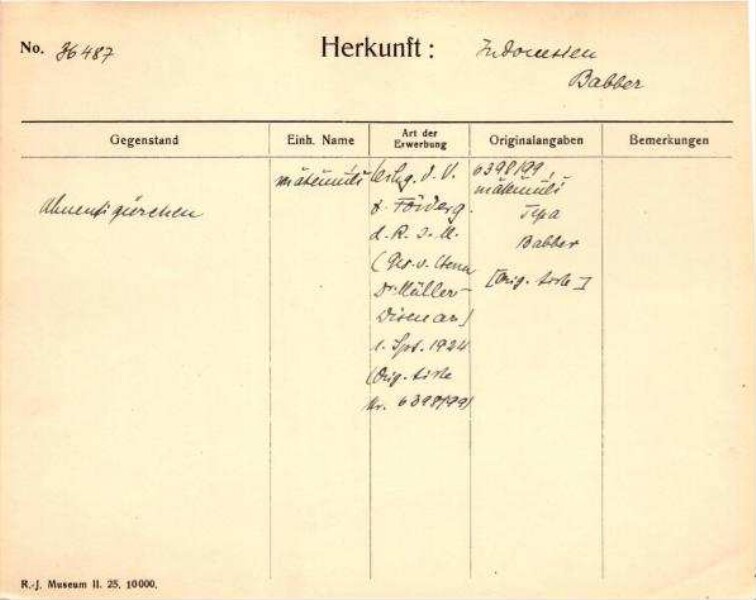 No. 36487
Herkunft: Indonesien
Babber
Gegenstand
Einh. Name
Art der
Erwerbung
Originalangaben
Bemerkungen
Ahnenfigürchen
d. V.
d. Förderg.
d. R. J. M.
(Ges. v. Herrn
Dr. Müller-
Wismar)
1. Spt. 1924
(Orig. Liste
Nr. 6398/99)
6398/99,
Tepa
Babber
[Orig. Liste]
R.-J. Museum II. 25. 10000.